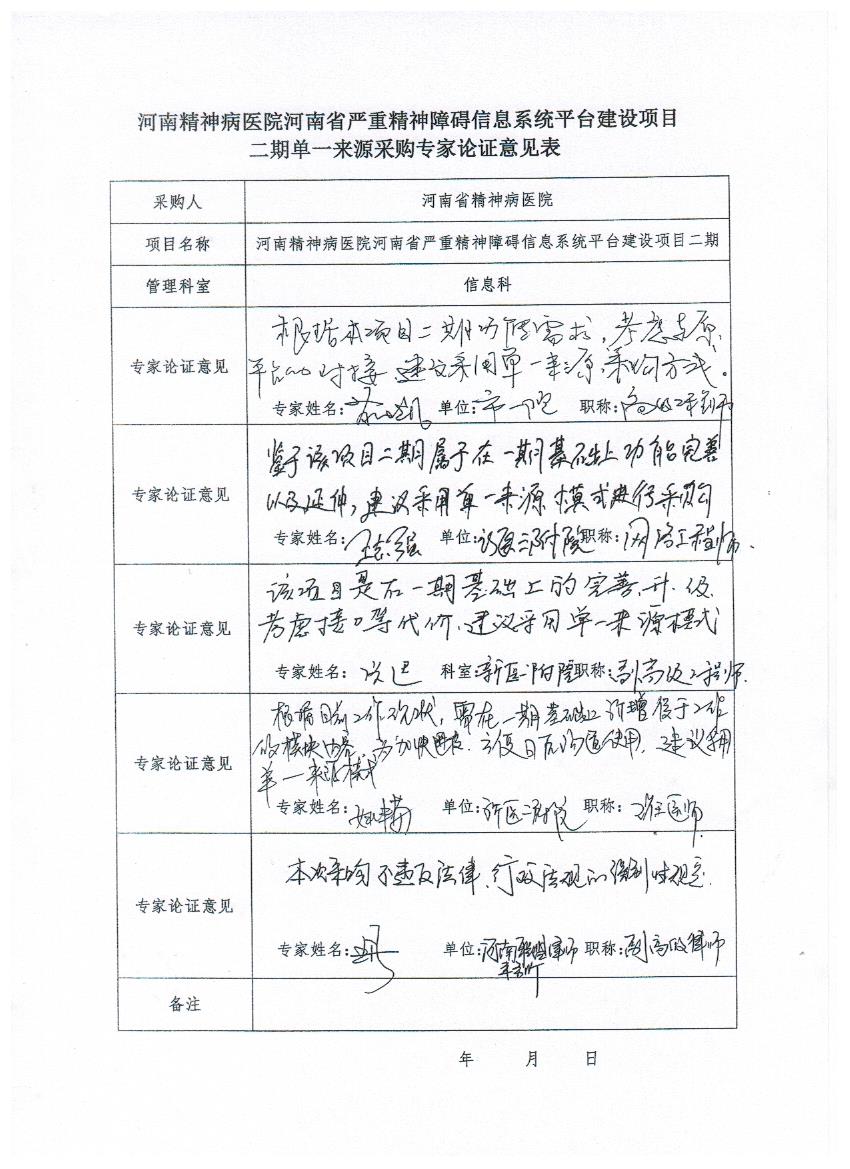 河南精神病医院河南省严重精神障碍信息系统平台建设项目
二期单一来源采购专家论证意见表
采购人 河南省精神病医院
项目名称 河南精神病医院河南省严重精神障碍信息系统平台建设项目二期
管理科室 信息科
根据本项目二期功能需求，考虑与原
专家论证意见 平台的对接，建议采用单一来源采购方式。
专家姓名： 单位：市一院 职称：高级工程师
鉴于该项目二期属于在一期基础上功能完善
专家论证意见 以及延伸，建议采用单一来源模式进行采购
专家姓名：王志强 单位：新医三附院 职称：网络工程师.
该项目是在一期基础上的完善、升级
专家论证意见 考虑接口等代价，建议采用单一来源模式
专家姓名： 科室：新医一附院 职称：副高级工程师.
根据目前工作现状，需在一期基础上
专家论证意见 的模块内容，为加快进度、方便日后沟通使用，建议采用
单一来源模式
专家姓名： 单位：新医二附院 职称：主任医师
本次采购不违反法律、行政法规的强制性规定.
专家论证意见
专家姓名： 单位：河南 律师 职称：副高级律师
事务所
备注
年 月 日